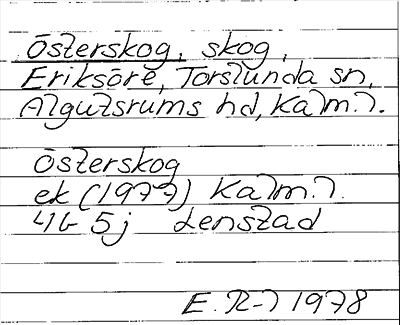 Österskog, skog,
Eriksöre, Torslunda sn,
Algutsrums hd, Kalm.l.
Österskog
ek (1977) Kalm.l.
4G 5j Lenstad
E. R-l 1978